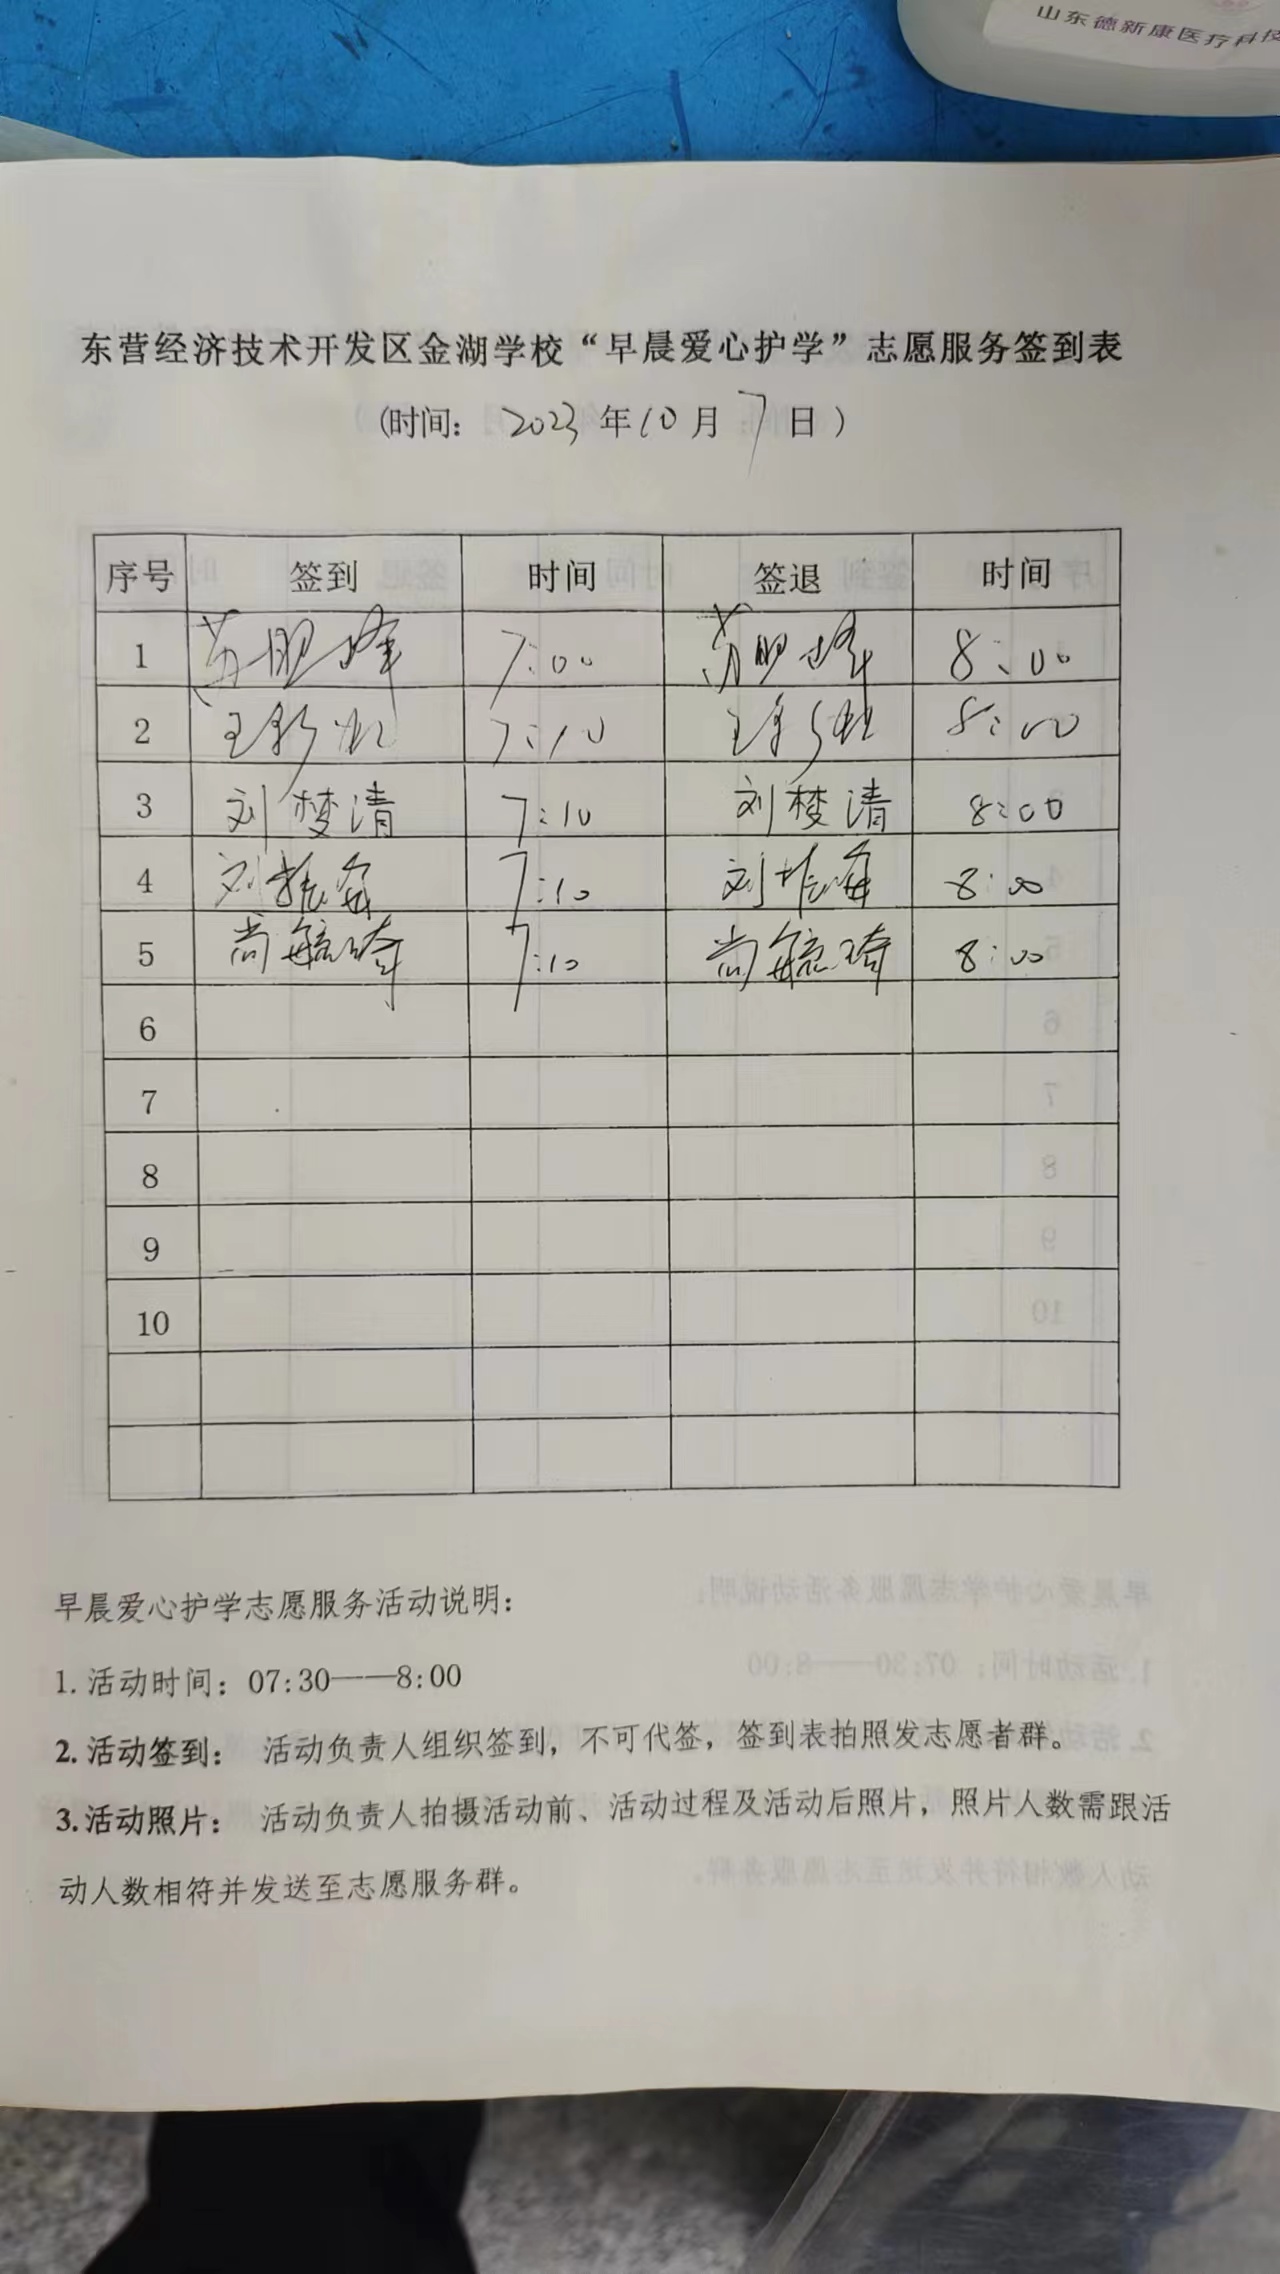 山东德新康医疗科技
东营经济技术开发区金湖学校“早晨爱心护学”志愿服务签到表
(时间: 2023年10月7日)
序号 签到 时间 签退 时间
1 苏 峰 7:00 苏 峰 8:00
2 王彩虹 7:10 王彩虹 8:00
3 刘梦清 7:10 刘梦清 8:00
4 刘振海 7:10 刘振海 8:00
5 尚毓琦 7:10 尚毓琦 8:00
6
7
8
9
10
早晨爱心护学志愿服务活动说明:
1.活动时间: 07:30——8:00
2.活动签到: 活动负责人组织签到, 不可代签, 签到表拍照发志愿者群。
3.活动照片: 活动负责人拍摄活动前、活动过程及活动后照片, 照片人数需跟活
动人数相符并发送至志愿服务群。